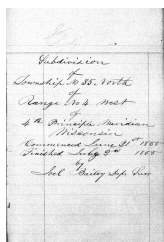 Subdivision
of
Township No 35. North
of
Range No 4 West
of
4th Principle Meridian
Wisconsin
Commenced June 21st 1855
Finished July 2nd 1855
by
Joel Bailey Dep. Surv